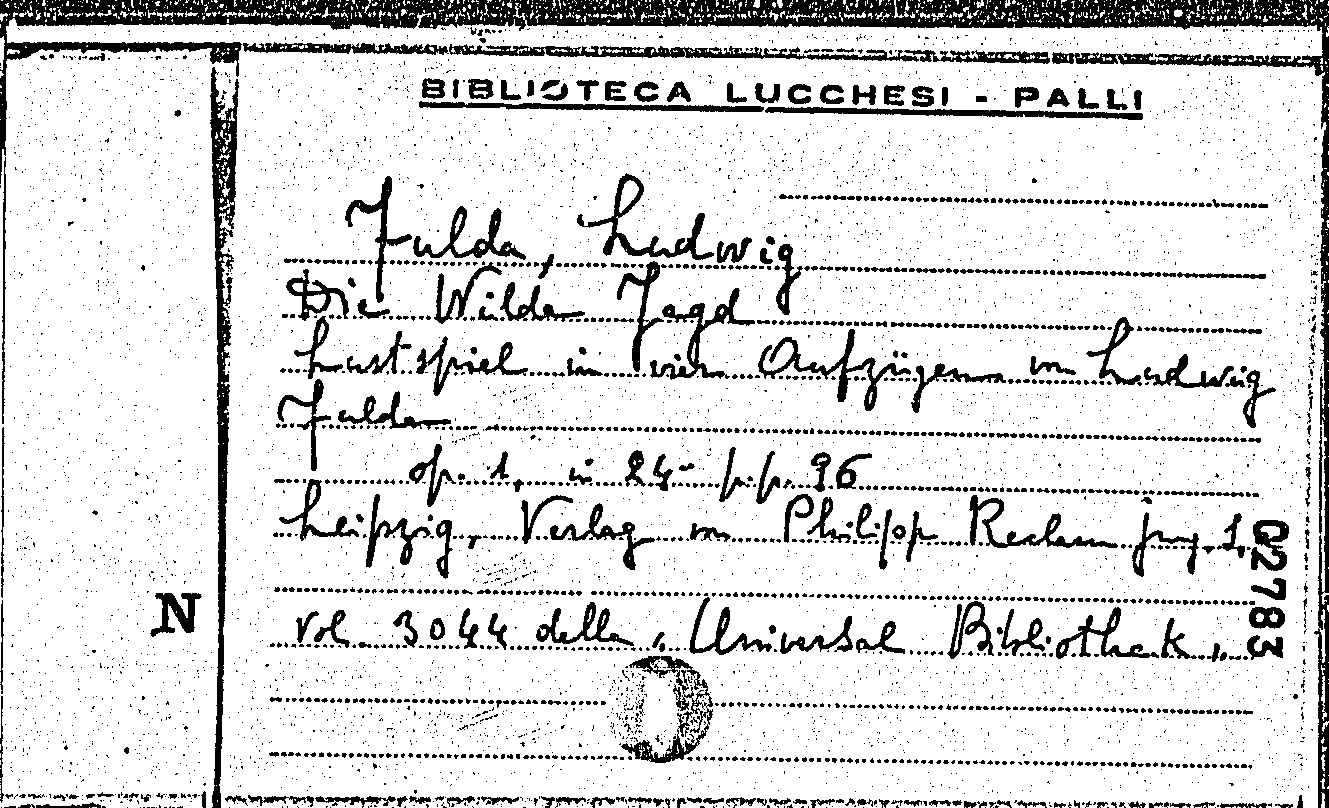 BIBLIOTECA LUCCHESI - PALLI
Fulda, Ludwig
Die Wilde Jagd
Lustspiel in vier Aufzügen von Ludwig
Fulda
op. 1, in 24- p.p. 96
Leipzig, Verlag von Philipp Reclam jun. 1,
vol. 3044 della „Universal Bibliothek„
N
02783